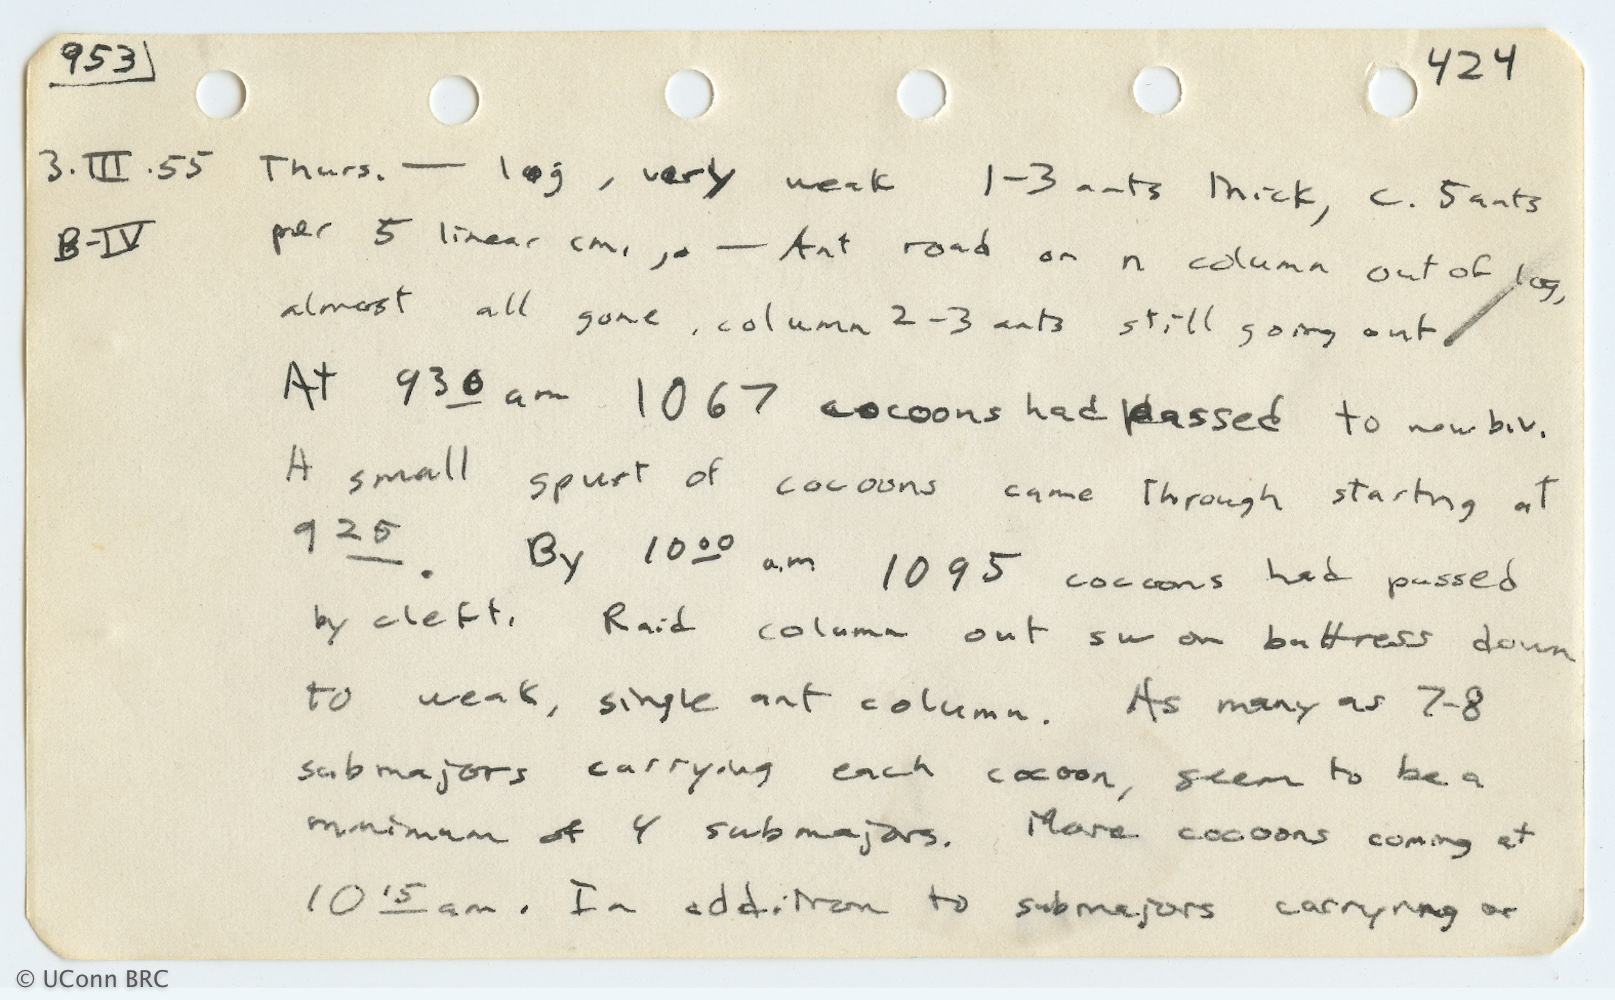 953 424
3.III.55 Thurs. — log, very weak 1-3 ants thick, c. 5 ants
B-IV per 5 linear cm. — Ant road on n column out of log,
almost all gone, column 2-3 ants still going out
At 930 am 1067 cocoons had passed to new biv.
A small spurt of cocoons came through starting at
925. By 1000 a.m 1095 cocoons had passed
by cleft. Raid column out sw on buttress down
to weak, single ant column. As many as 7-8
submajors carrying each cocoon, seem to be a
minimum of 4 submajors. More cocoons coming at
1015 am. In addition to submajors carrying or
© UConn BRC